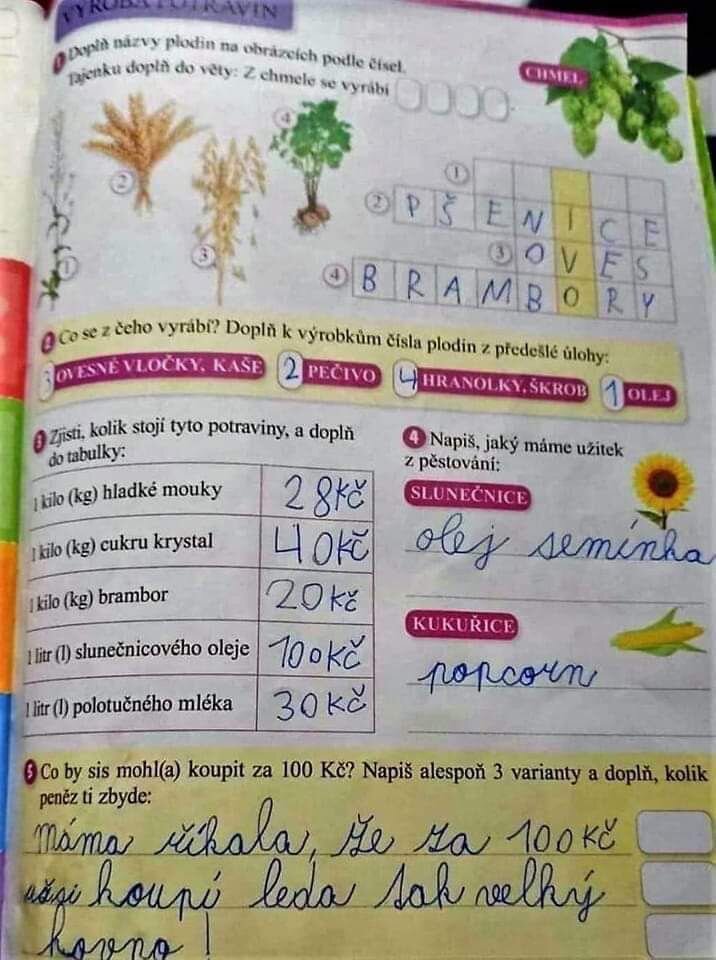 VÝROBA POTRAVIN
1 Doplň názvy plodin na obrázcích podle čísel.
Tajenku doplň do věty: Z chmele se vyrábí
CHMEL
4
2
3
1
1
2 P Š E N I C E
3 O V E S
4 B R A M B O R Y
2 Co se z čeho vyrábí? Doplň k výrobkům čísla plodin z předešlé úlohy:
3 OVESNÉ VLOČKY, KAŠE 2 PEČIVO 4 HRANOLKY, ŠKROB 1 OLEJ
3 Zjisti, kolik stojí tyto potraviny, a doplň
do tabulky:
1 kilo (kg) hladké mouky 28Kč
1 kilo (kg) cukru krystal 40Kč
1 kilo (kg) brambor 20Kč
1 litr (l) slunečnicového oleje 100Kč
1 litr (l) polotučného mléka 30Kč
4 Napiš, jaký máme užitek
z pěstování:
SLUNEČNICE
olej semínka
KUKUŘICE
popcorn
5 Co by sis mohl(a) koupit za 100 Kč? Napiš alespoň 3 varianty a doplň, kolik
peněz ti zbyde:
máma říkala, že za 100Kč
koupí leda tak velký
hovno!